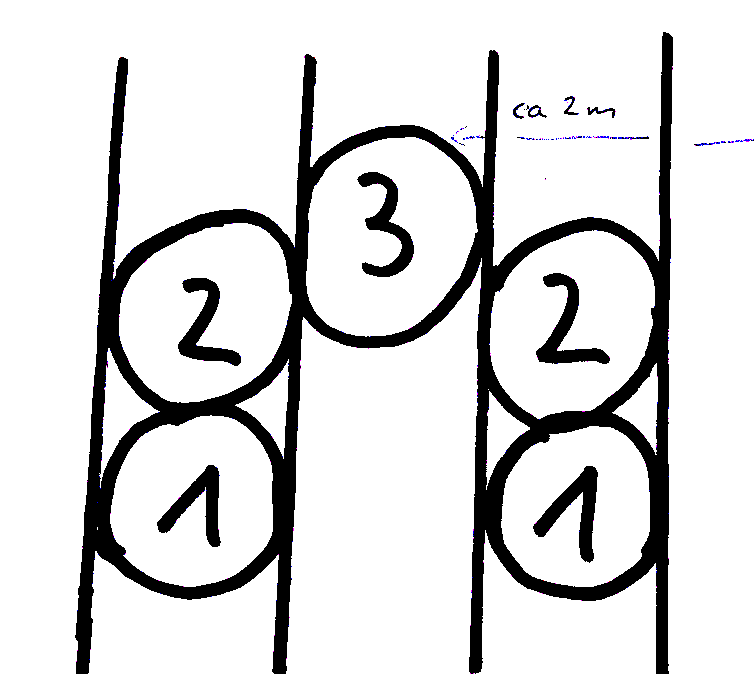 ca 2m
3
2 2
1 1